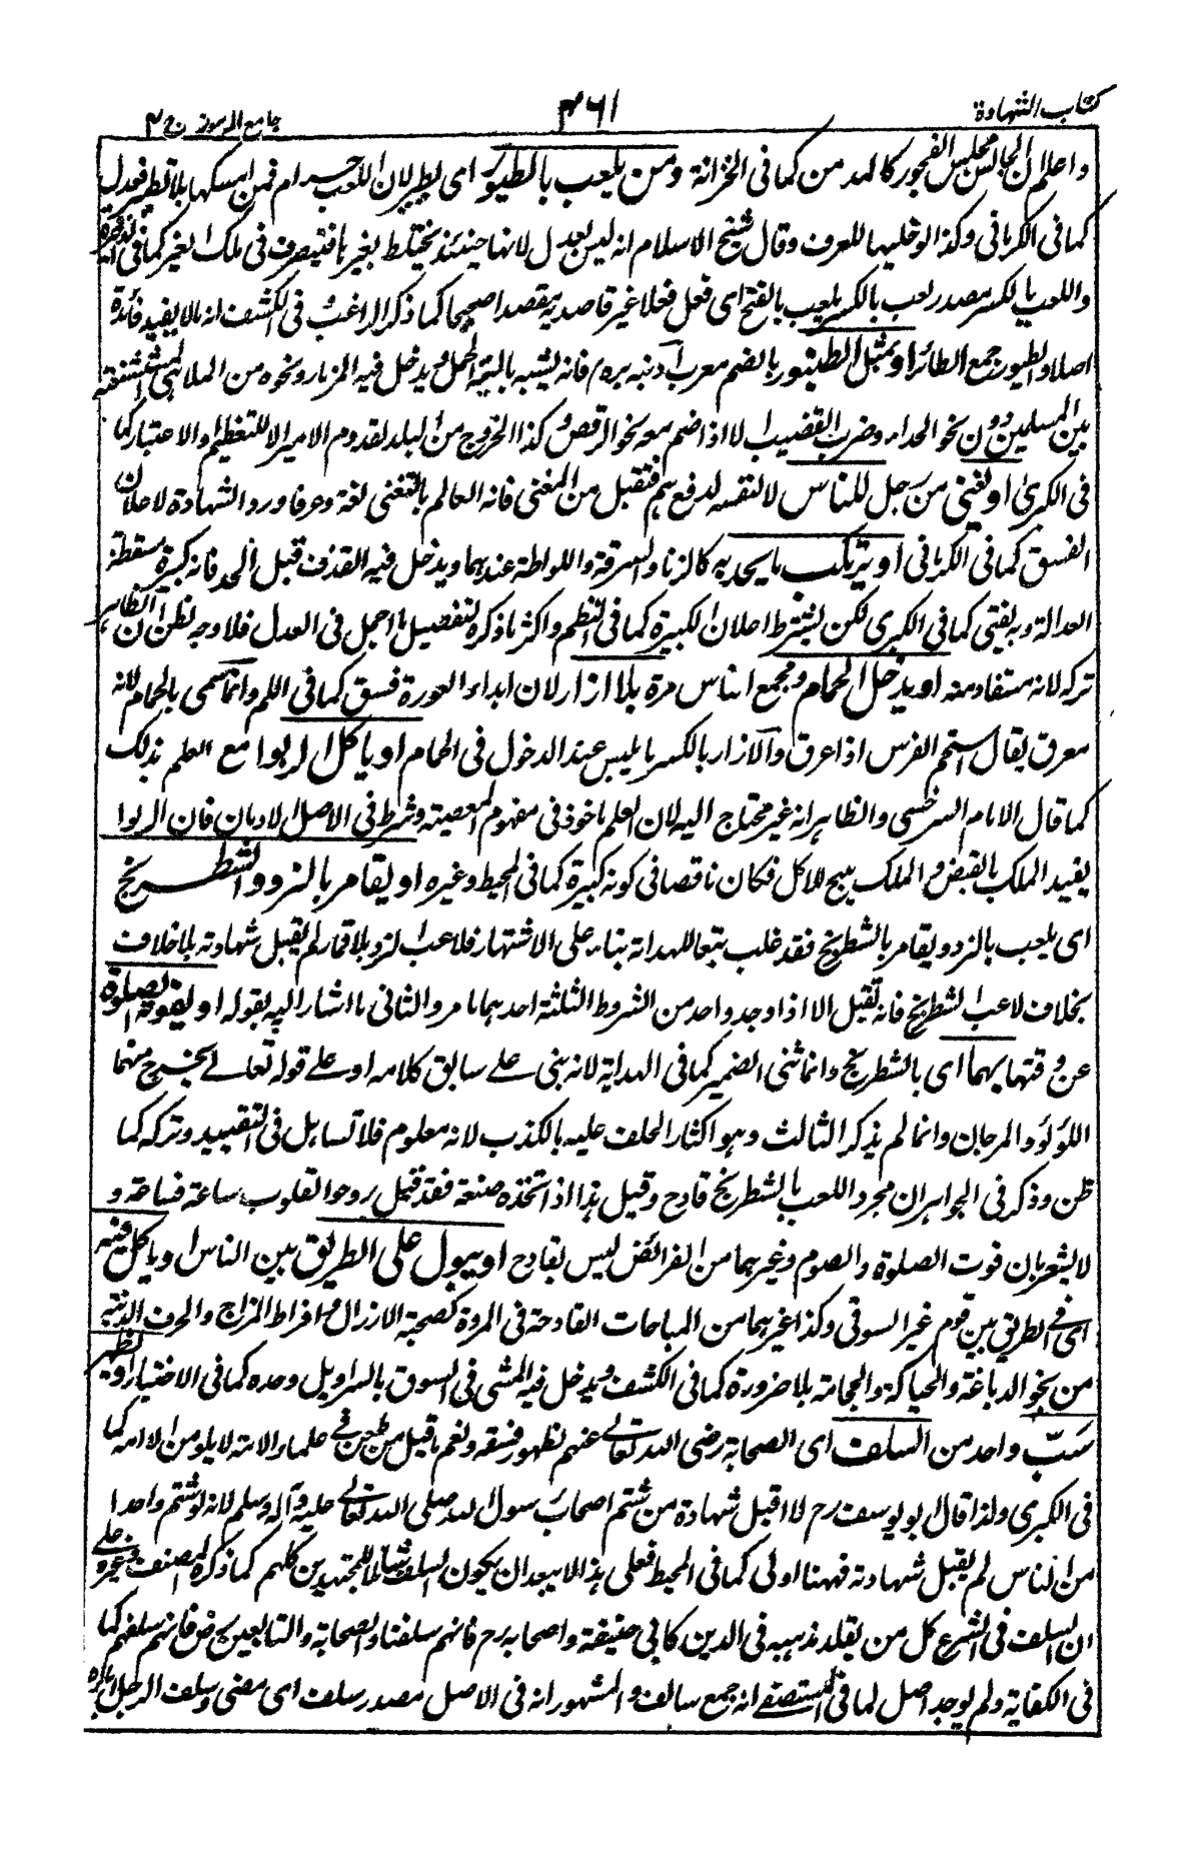 كتاب الشهادة
٣٦١
جامع الرموز ج ٢
واعلم ان الجالس مجلس الفجور كالمدمن كما فى الخزانة ومن يلعب بالطيور اى يطير لان اللعب حرام فمن امسكها بلا تطير فعدل
كما فى الكرمانى وكذا لو خليها للعرف وقال شيخ الاسلام انه ليس بعدل لانها حينئذ يختلط بغيرها فيتصرف فى ملك الغير كما فى الذخيرة
واللعب بالكسر مصدر لعب بالكسر يلعب بالفتح اى فعل فعلا غير قاصد به مقصدا صحيحا كما ذكر الراغب و فى الكشف انه مالا يفيد فائدة
اصلا والطيور جمع الطائر او بمثل الطنبور بالضم معرب دنبه بره فانه يشبه بالية الحمل ويدخل فيه المزمار ونحوه من الملاهى المستشنعة
بين المسلمين دون نحو الحداء وضرب القضيب الا اذا ضم معه نحو الرقص وكذا الخروج من البلد لقدوم الامير الا للتعظيم والاعتبار كما
فى الكبرى او يغنى من رجل للناس لا لنفسه لدفع هم فتقبل من المغنى فانه العالم بالتغنى لغة وعرفا ورد الشهادة لاعلان
الفسق كما فى الكرمانى او يرتكب ما يحد به كالزنا والسرقة واللواطة عندهما ويدخل فيه القذف قبل الحد فانه كبيرة مسقطة
العدالة وبه يفتى كما فى الكبرى لكن يشترط اعلان الكبيرة كما فى النظم واكثر ما ذكره تفصيل ما اجمل فى العدل فلا وجه لظن ان الظاهر
تركه لانه مستفاد منه او يدخل الحمام ومجمع الناس مرة بلا ازار لان ابداء العورة فسق كما فى اللم وانما سمى بالحمام لانه
معرق يقال استحم الفرس اذا عرق والازار بالكسر ما يلبس عند الدخول فى الحمام او ياكل الربوا مع العلم بذلك
كما قال الامام السرخسى والظاهر انه غير محتاج اليه لان العلم ماخوذ فى مفهوم المعصية وشرط فى الاصل الادمان فان الربوا
يفيد الملك بالقبض والملك مبيح للاكل فكان ناقصا فى كونه كبيرة كما فى المحيط وغيره او يقامر بالنرد والشطرنج
اى يلعب بالنرد ويقامر بالشطرنج فقد غلب تبعا للهداية بناء على الاشتهار فلاعب النرد بلا قمار لم يقبل شهادته بلا خلاف
بخلاف لاعب الشطرنج فانه تقبل الا اذا وجد واحد من الشروط الثلثة احدهما ما مر والثانى ما اشار اليه بقوله او يفوته الصلوة
عن وقتها بهما اى بالشطرنج وانما ثنى الضمير كما فى الهداية لانه بنى على سابق كلامه او على قوله تعالى يخرج منهما
اللؤلؤ والمرجان وانما لم يذكر الثالث وهو اكثار الحلف عليه بالكذب لانه معلوم فلا تساهل فى التقييد وتركه كما
ظن وذكر فى الجواهر ان مجرد اللعب بالشطرنج قادح وقيل هذا اذا اتخذه صنعة فقد قيل روحوا القلوب ساعة فساعة و
لا يشعر بان فوت الصلوة والصوم وغيرهما من الفرائض ليس بقادح او يبول على الطريق بين الناس او ياكل فيه
اى فى الطريق بين قوم غير السوقى وكذا غيرهما من المباحات القادحة فى المروة كصحبة الارزال وافراط المزاح والحرف الدنية
من نحو الدباغة والحياكة والحجامة بلا ضرورة كما فى الكشف ويدخل فيه المشى فى السوق بالسراويل وحده كما فى الاختيار او يظهر
سَبّ واحد من السلف اى الصحابة رضى الله تعالى عنهم لظهور فسقه ونعم ما قيل من طعن فى علماء الامة لا يلومن الا امه كما
فى الكبرى ولذا قال ابو يوسف رح لا اقبل شهادة من شتم اصحاب رسول الله صلى الله تعالى عليه وآله وسلم لانه لو شتم واحدا
من الناس لم يقبل شهادته فههنا اولى كما فى المحيط فعلى هذا لا يبعد ان يكون السلف شاملا للمجتهدين كلهم كما ذكره المصنف وغيره على
ان السلف فى الشرع كل من يقلد مذهبه فى الدين كابى حنيفة واصحابه رح فانهم سلفنا والصحابة والتابعين رض فانهم سلفهم كما
فى الكفاية ولم يوجد اصل لما فى المستصفى انه جمع سالف والمشهور انه فى الاصل مصدر سلف اى مضى وسلف الرجل اباؤه